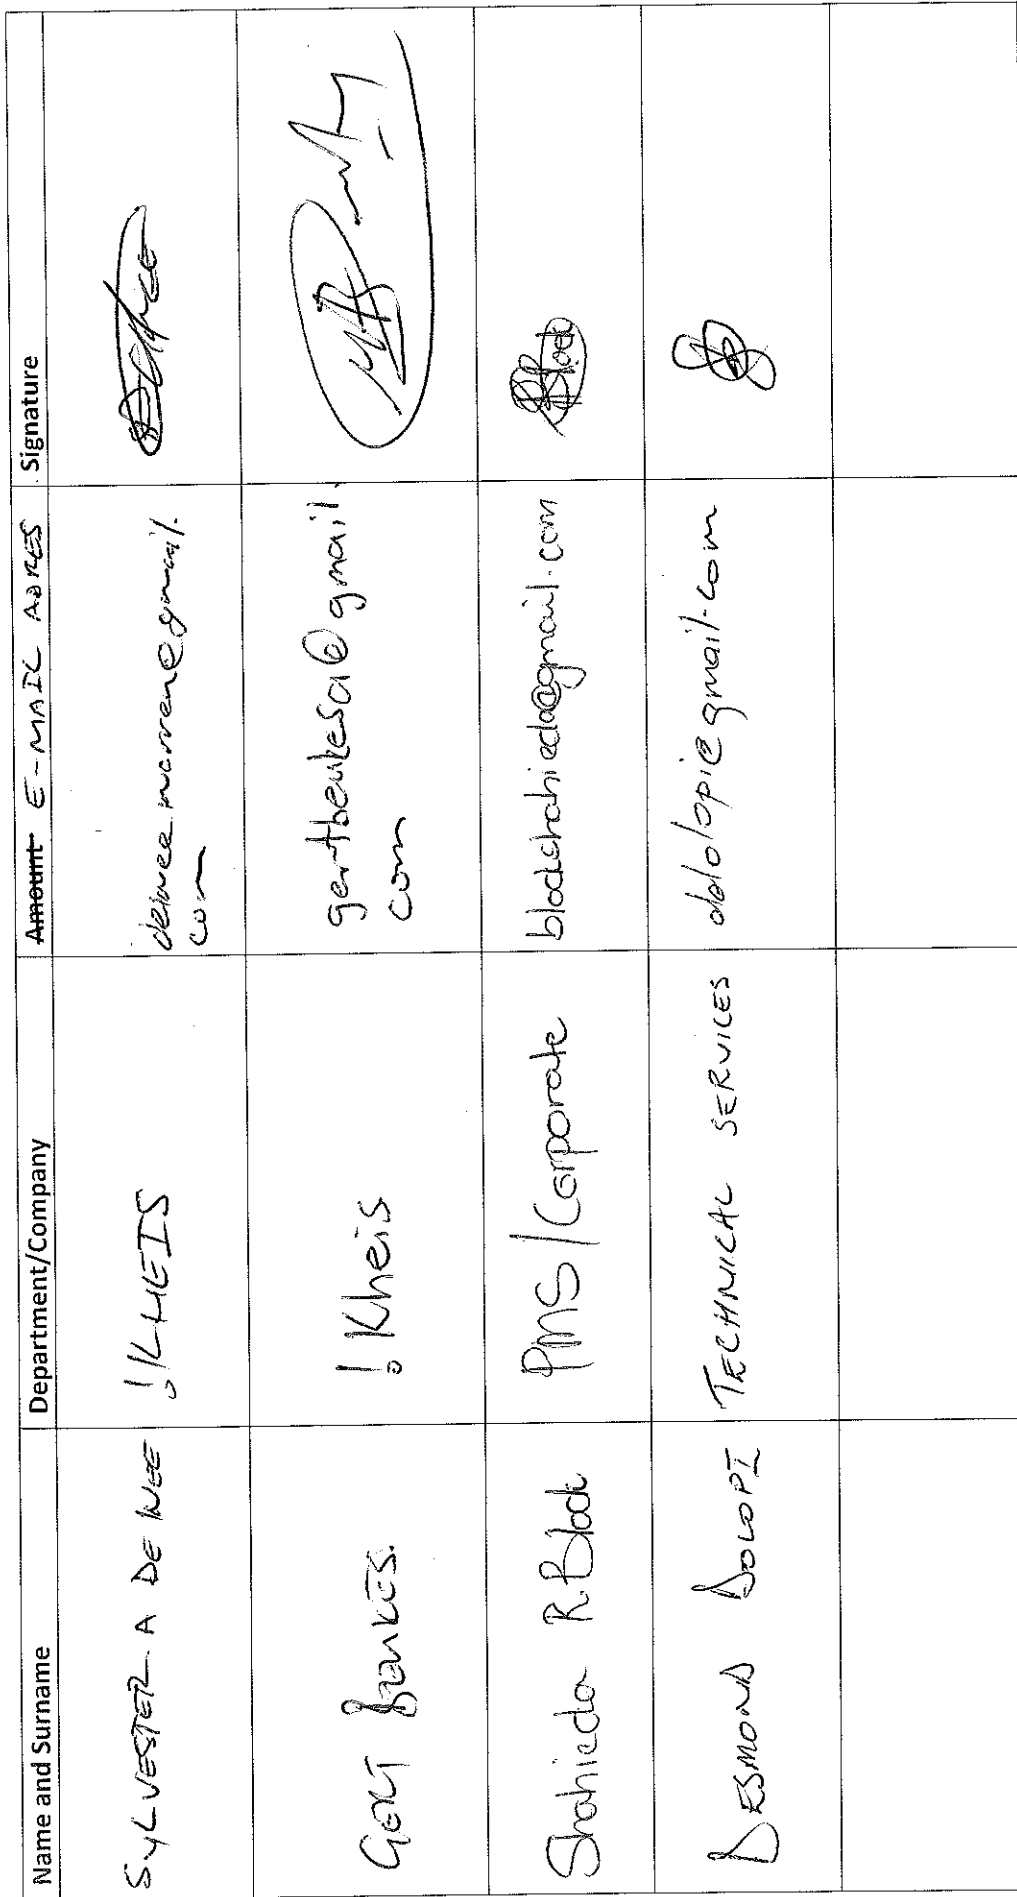 Name and Surname Department/Company Amount E-MAIL ADRES Signature
SYLVESTER A DE WEE !KHEIS gmail.
com
GERT BEUKES. !Kheis gertbeukesa@gmail.
com
Shahieda R Block PMS/Corporate blockshahieda@gmail.com Block
DESMOND DOLOPI TECHNICAL SERVICES dolopi@gmail.com